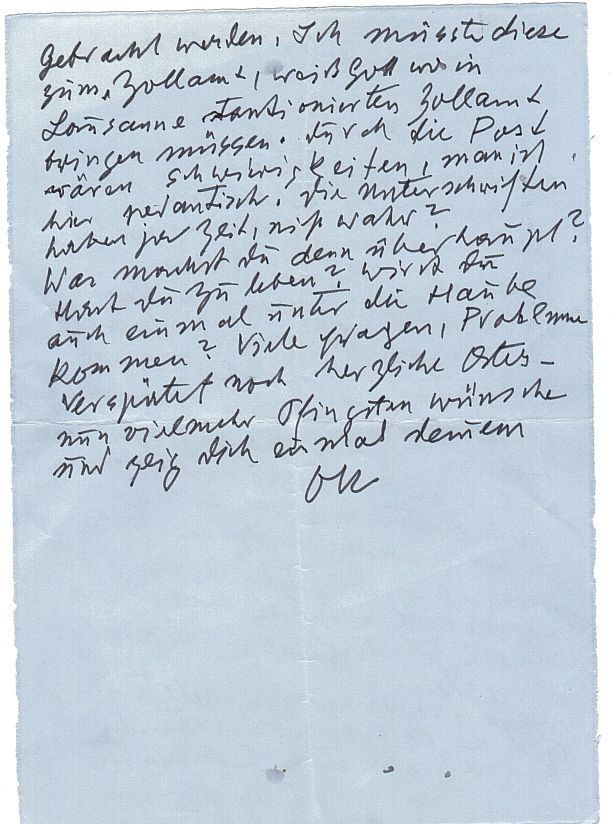 gebracht werden, Ich müsste diese
zum Zollamt, weiß Gott wo in
Lousanne stantionierten Zollamt
bringen müssen. Durch die Post
wären schwierigkeiten, man ist
hier pedantisch. Die Unterschriften
haben ja Zeit, nicht wahr?
Was machst du denn überhaupt?
Hast du zu leben? wirst du
auch einmal unter die Haube
kommen? Viele Fragen, Probleme
Verspätet noch herzliche Oster-
nun vielmehr Pfingsten wünsche
und zeig dich einmal deinem
OK